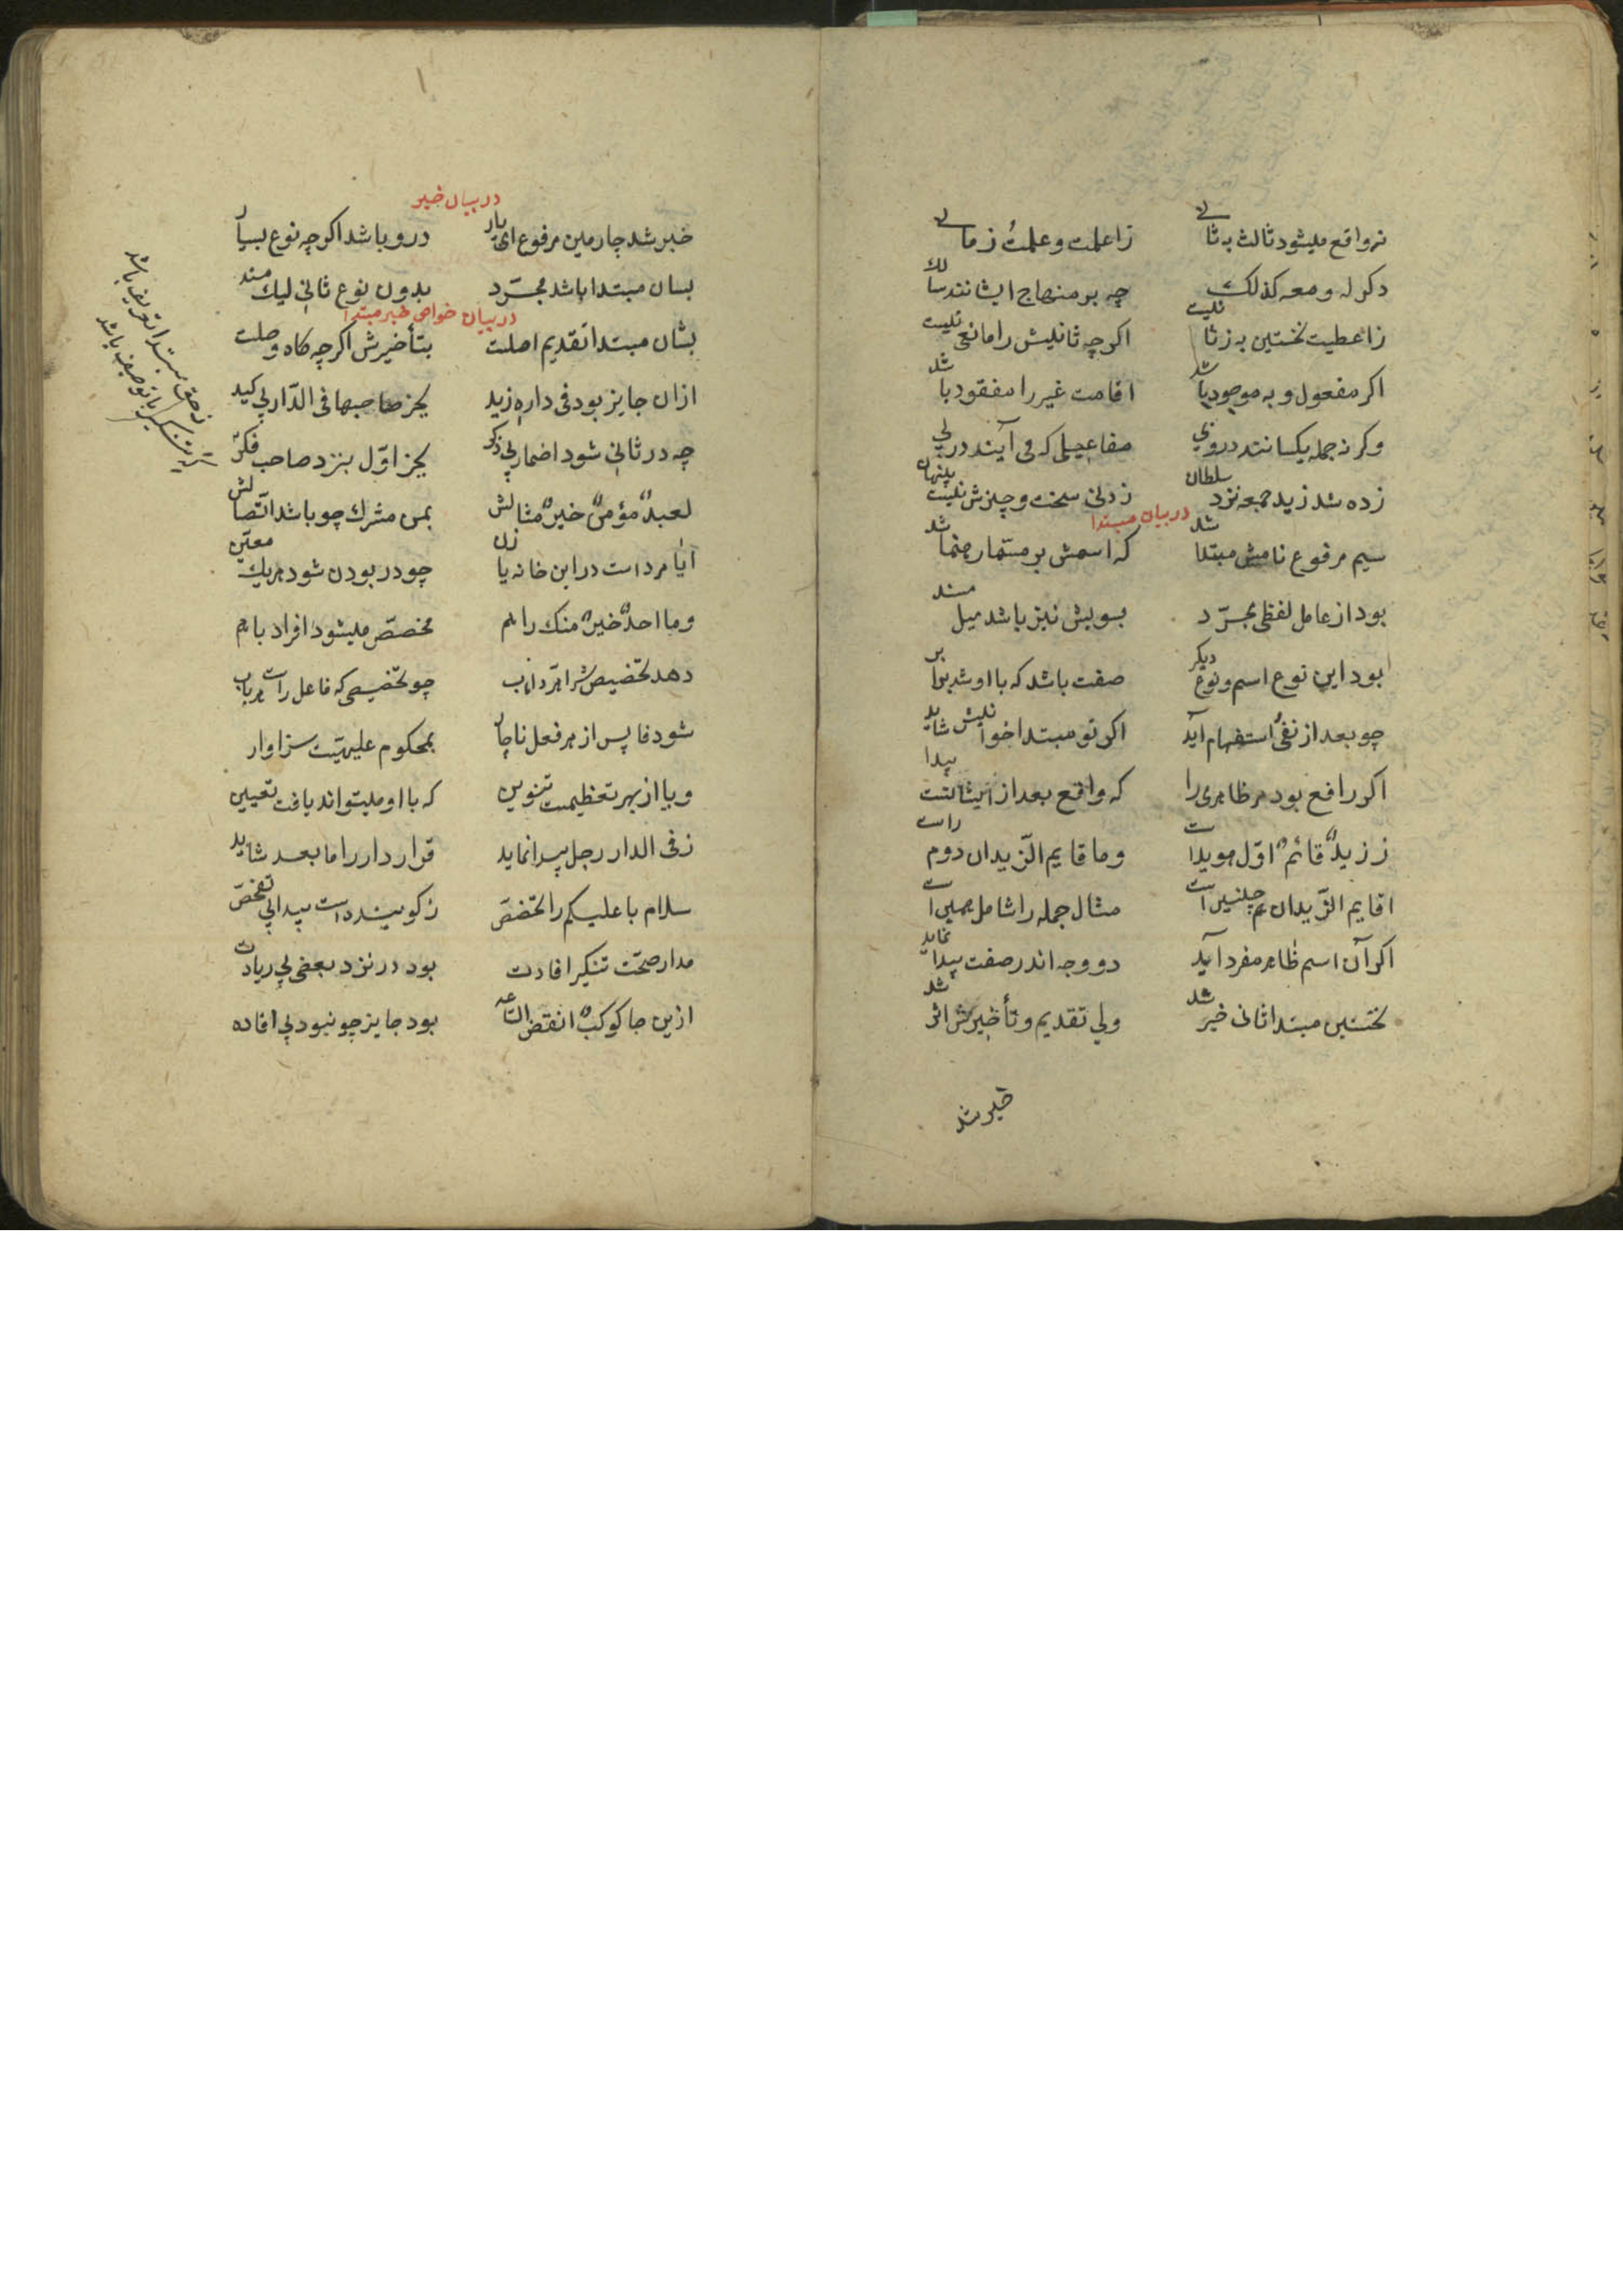 نه واقع میشود ثالث به ثانی ز اعلمت و علمت زمانی
دکر له و معه کذلک چه بر منهاج ایشانند سالک
ز اعطیت نخستین به ز ثانیست اکر چه ثانیش را مانعی نیست
اکر مفعول و به موجود باشد اقامت غیر را مفقود باشد
وکرنه جمله یکسانند در وی مفاعیلی که می آیند در پی
زده شد زید جمعه نزد سلطان زدنی سخت و چیزش نیست پنهان
در بیان مبتدا
سیم مرفوع نامش مبتدا شد که اسمش بر مستمار
بود از عامل لفظی مجرّد بسویش نیز باشد میل مسند
بود این نوع اسم و نوع دیکر صفت باشد که با او شد برابر
چو بعد از نفی استفهام آید اکر تو مبتدا خوانیش شاید
اکر رافع بود مر ظاهری را که واقع بعد از اینشانست پیدا
ز زیدٌ قائمٌ اوّل هویداست و ما قایم الزّیدان دوم راست
اقایم الزّیدان هم چنین است مثال جمله را شامل همین است
اکر آن اسم ظاهر مفرد آید دو وجه اندر صفت پیدا نماید
نخستین مبتدا ثانی خبر شد ولی تقدیم و تأخیرش اثر شد
خبر شد
در بیان خبر
خبر شد چارمین مرفوع ای یار درو باشد اکر چه نوع بسیار
بسان مبتدا باشد مجرّد بدون نوع ثانی لیک مسند
در بیان خواص خبر مبتدا
بشان مبتدا تقدیم اصلت بتأخیرش اکر چه کاه وصلت
ازان جایز بود فی داره زید بجز صاحبها فی الدّار بی کید
چه در ثانی شود اضمار بی ذکر بجز اوّل بنزد صاحب فکر
لعبدٌ مؤمنٌ خیرٌ مثالش بمن مشرک چو باشد اتّصالش
ایا مرد است در این خانه یا زن چو در بودن شود هر یک معیّن
و ما احدٌ خیرٌ منک را هم مخصّص میشود افراد باهم
دهد تخصیص شرا هرّ ذاناب چو تخصیصی که فاعل راست هر باب
شود فا پس از هر فعل ناچار بمحکوم علیهیّت سزاوار
و یا از بهر تعظیمست تنوین که با او میتواند یافت تعیین
ز فی الدار رجل پیدا نماید قرار دار را ما بعد شاید
سلام با علیکم را تخصّص ز کوینده است پیدا بی تفحّص
مدار صحّت تنکیر افادت بود در نزد بعضی بی زیادت
ازین جا کوکبٌ انقض السّاعه بود جایز چو نبود بی افاده
ز حق مبتدا تعریف باشد
کر تنکیر با توصیف باشد